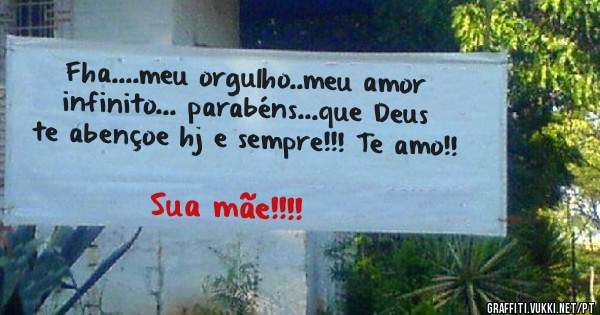 Fha....meu orgulho..meu amor
infinito... parabéns...que Deus
te abençoe hj e sempre!!! Te amo!!
Sua mãe!!!!
GRAFFITI.VUKKI.NET/PT